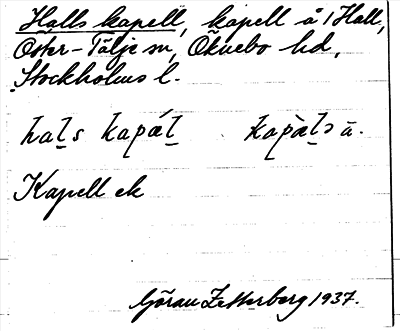 Halls kapell, kapell å 1 Hall,
Öster-Tälje sn, Öknebo hd,
Stockholms l.
hals kapäl kapäls ä.
Kapell ek
Göran Zetterberg 1937.